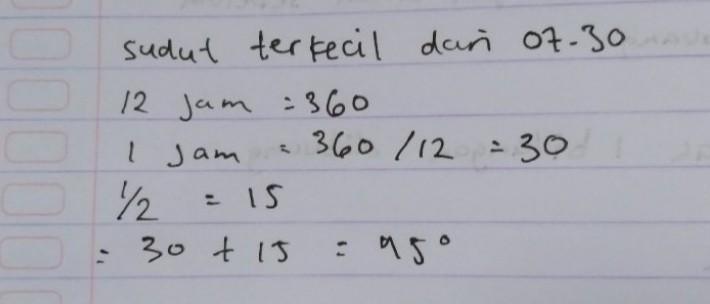 sudut terkecil dari 07.30
12 jam = 360
1 Jam = 360 / 12 = 30
1/2 = 15
= 30 + 15 = 45°